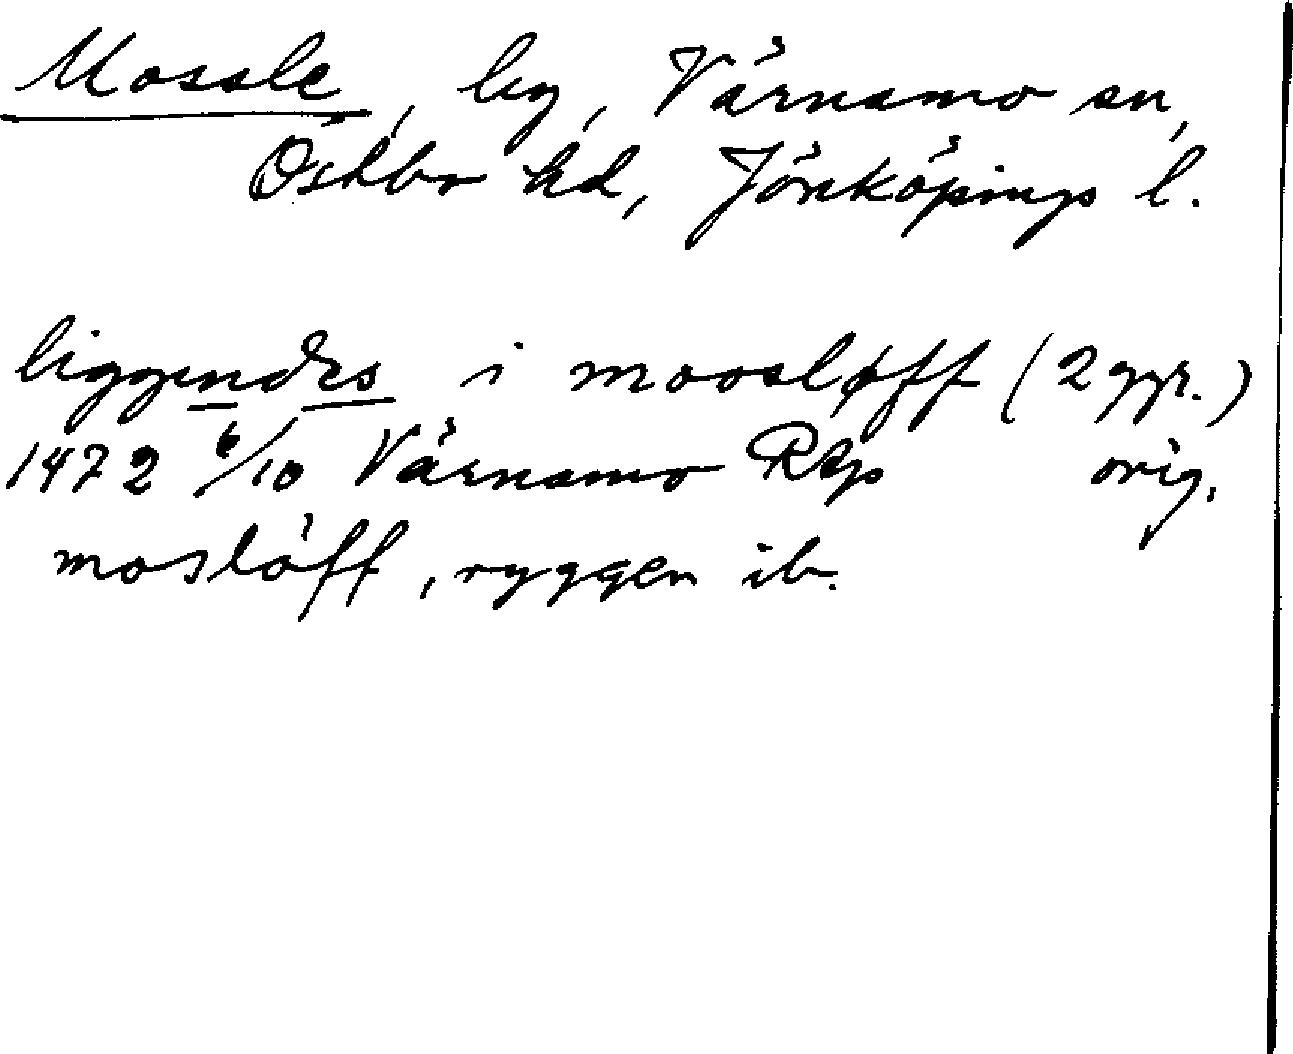 Mossle, by, Värnamo sn,
Östbo hd, Jönköpings l.
liggendes i moosløff (2 ggr.)
1472 6/10 Värnamo Rap orig.
moslöff, ryggen ib.